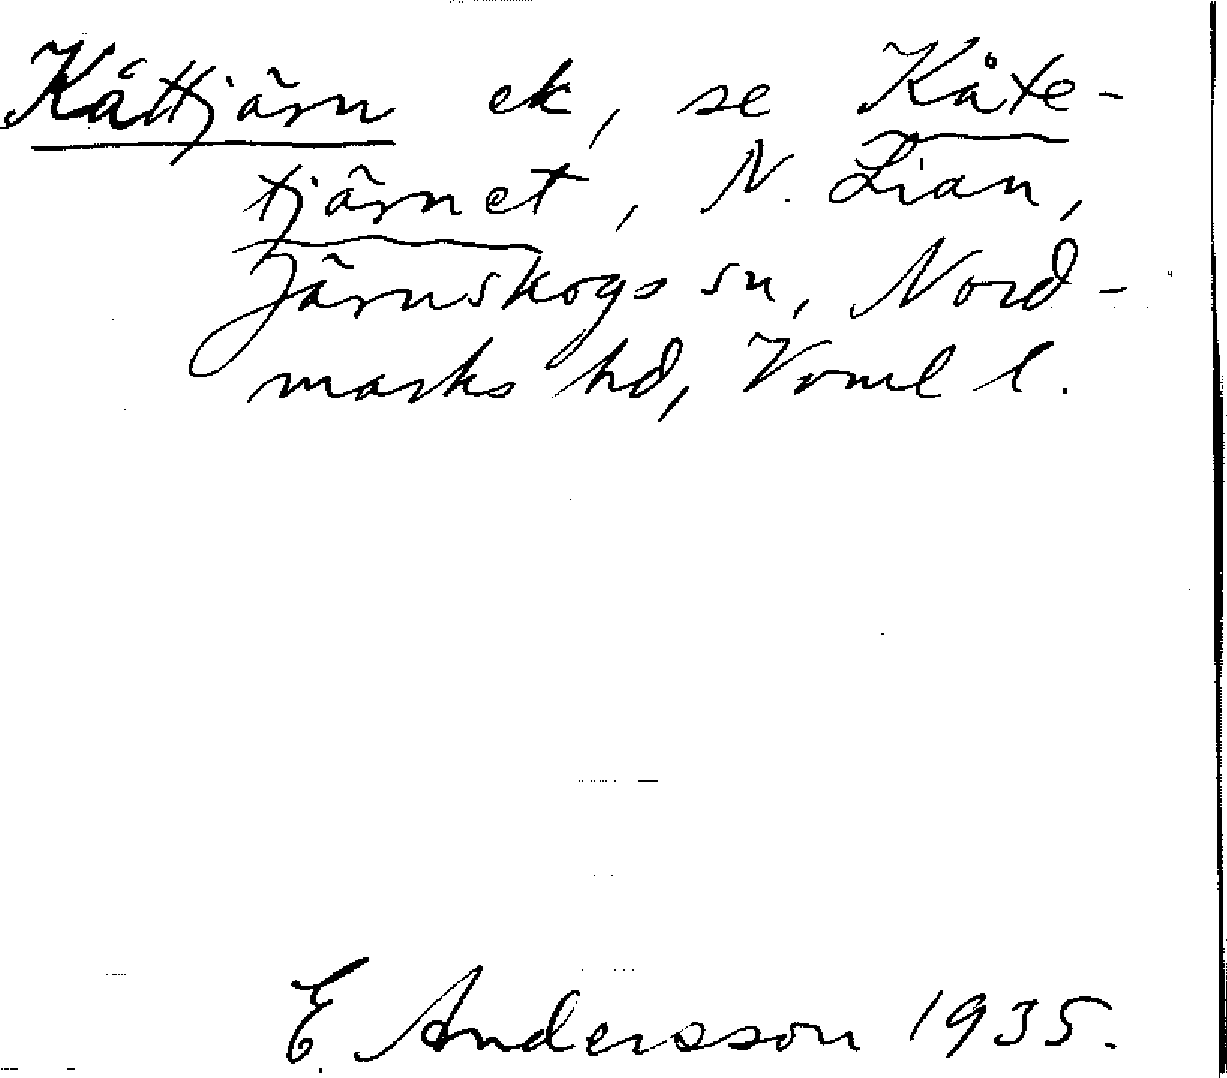 Kåttjärn ek, se Kåte-
tjärnet, N. Lian,
Järnskogs sn, Nord-
marks hd, Vrml l.
E Andersson 1935.